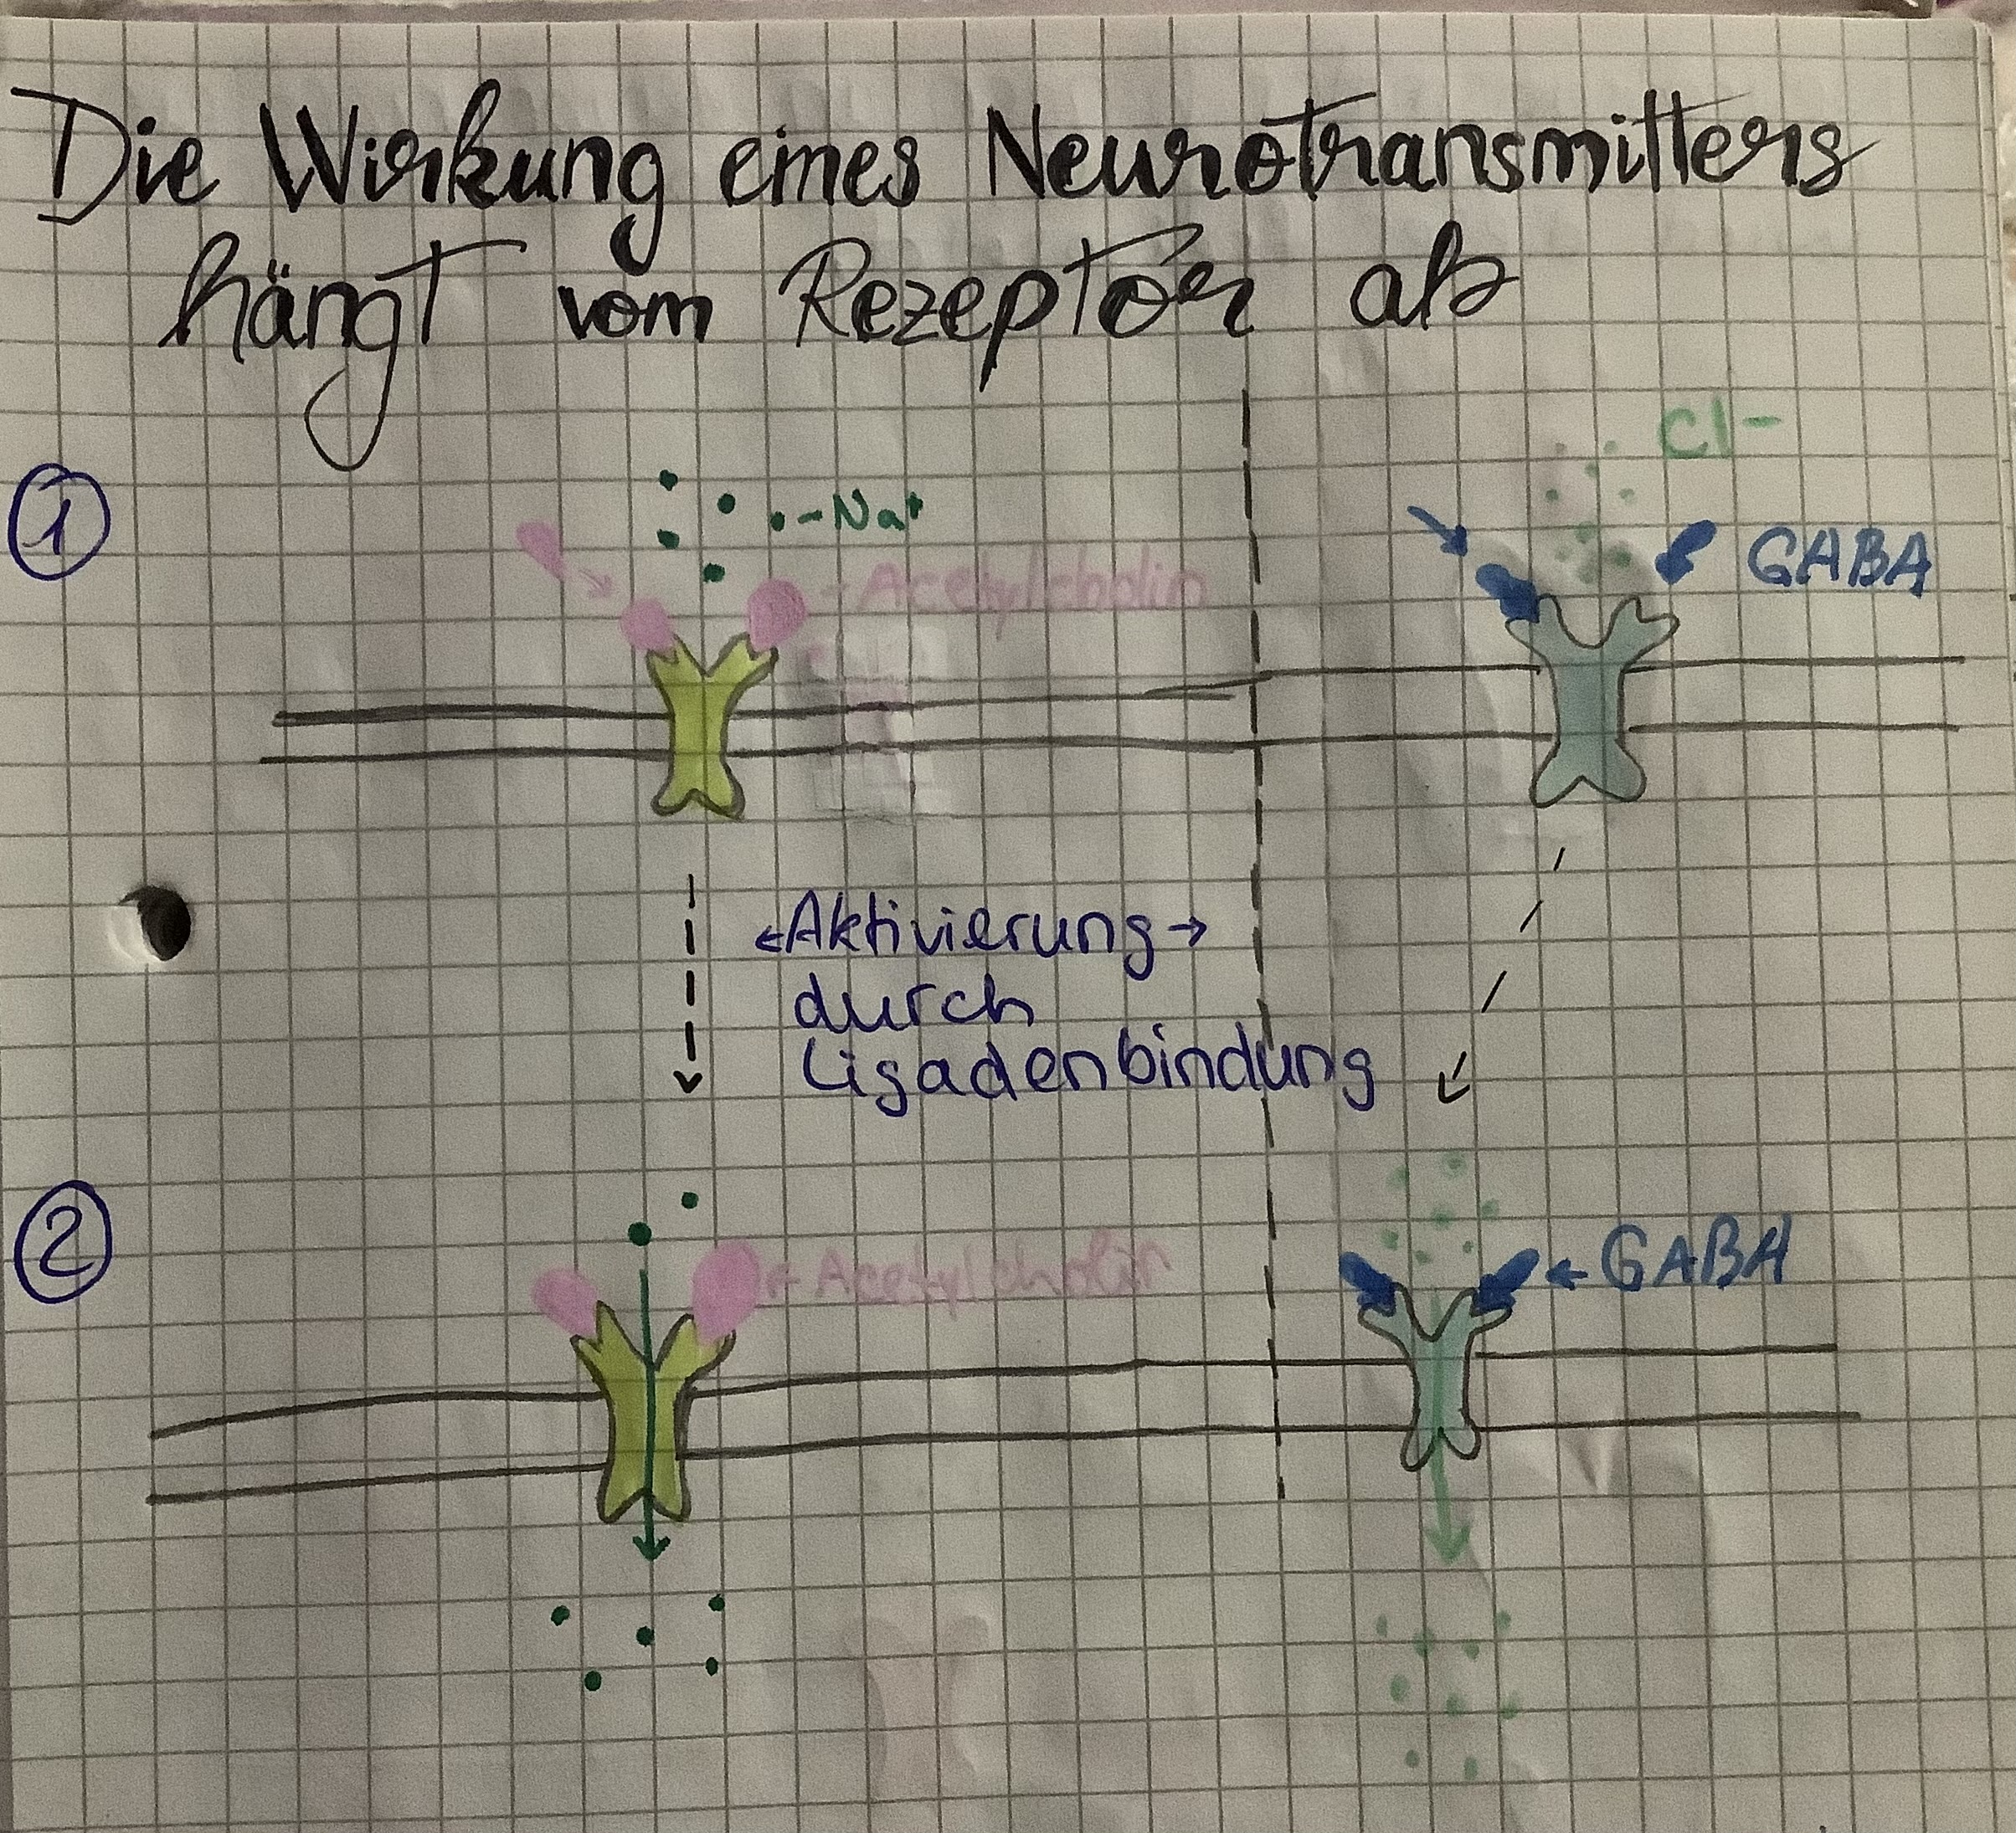 Die Wirkung eines Neurotransmitters
hängt vom Rezeptor ab
Cl-
1
-Na+
-Acetylcholin
GABA
←Aktivierung→
durch
Ligadenbindung
2
←Acetylcholin
← GABA